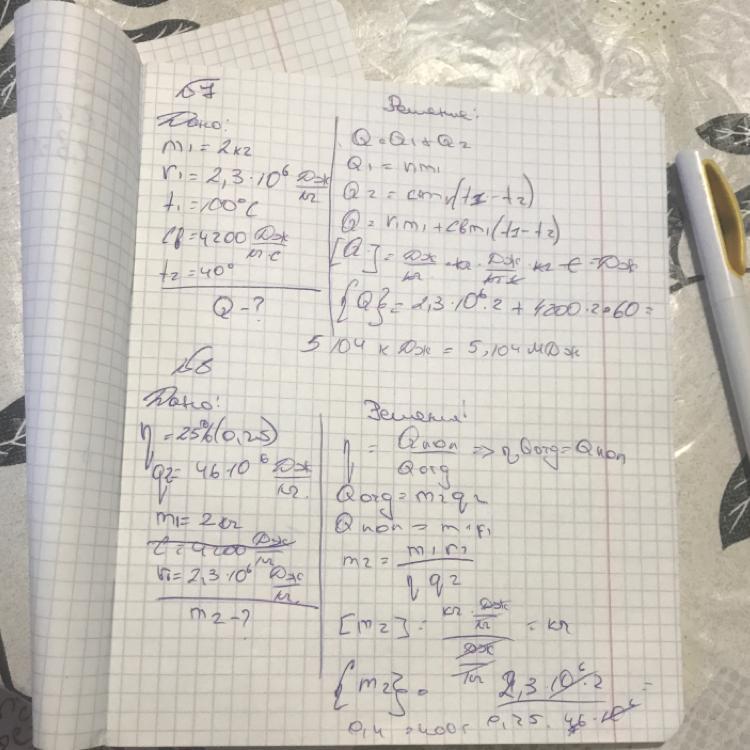 №7
Дано:
m₁ = 2 кг
r₁ = 2,3·10⁶ Дж/кг
t₁ = 100°C
cв = 4200 Дж/кг·c
t₂ = 40°
Q - ?
Решение:
Q = Q₁ + Q₂
Q₁ = rm₁
Q₂ = cm₁(t₁ - t₂)
Q = r₁m₁ + cвm₁(t₁ - t₂)
[Q] = Дж/кг · кг · кг · c = Дж
{Q} = 2,3·10⁶·2 + 4200·2·60 =
5 104 кДж = 5,104 мДж
№8
Дано:
η = 25% (0,25)
q₂ = 46·10⁶ Дж/кг
m₁ = 2 кг
c = 4200 Дж/кг
r₁ = 2,3·10⁶ Дж/кг
m₂ - ?
Решения:
η = Qпол/Qотд => ηQотд = Qпол
Qотд = m₂q₂
Qпол = m₁r₁
m₂ = m₁r₁/ηq₂
[m₂] = кг·Дж/кг / Дж/кг = кг
{m₂} = 2,3·10⁶·2 / 0,25·46·10⁶ =
0,4 = 400г